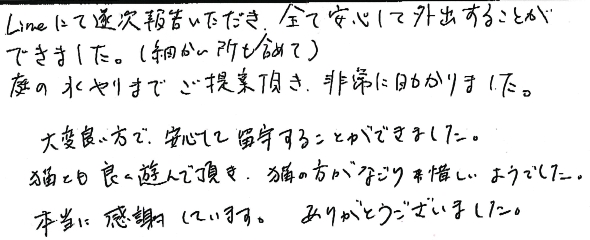 Lineにて逐次報告いただき、全て安心して外出することが
できました。(細かい所も含めて)
庭の水やりまでご提案頂き、非常に助かりました。
大変良い方で、安心して留守することができました。
猫とも良く遊んで頂き、猫の方がなごり惜しいようでした。
本当に感謝しています。ありがとうございました。